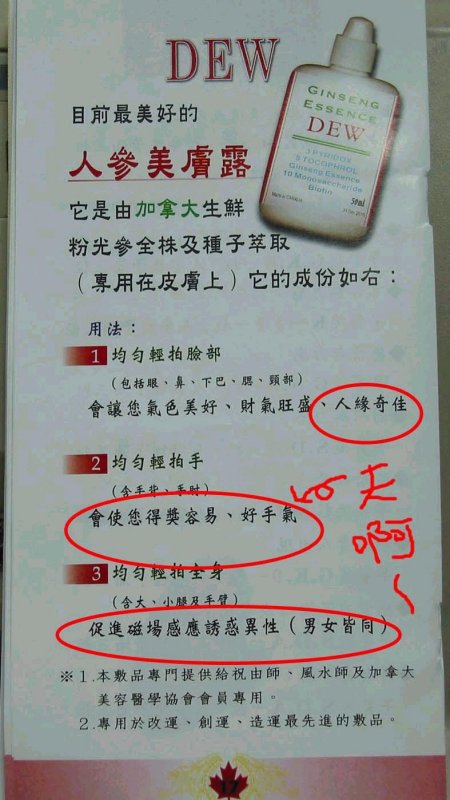 DEW
目前最美好的
人參美膚露
它是由加拿大生鮮
粉光參全株及種子萃取
(專用在皮膚上)它的成份如右：
GINSENG
ESSENCE
DEW
3 PYRIDOX
5 TOCOPHROL
Ginseng Essence
10 Monosaccharide
Biotin
50ml
用法：
1 均勻輕拍臉部
(包括眼、鼻、下巴、腮、頸部)
會讓您氣色美好、財氣旺盛、人緣奇佳
2 均勻輕拍手
(含手背、手肘)
會使您得獎容易、好手氣
天
啊
3 均勻輕拍全身
(含大、小腿及手臂)
促進磁場感應誘惑異性(男女皆同)
※1.本敷品專門提供給祝由師、風水師及加拿大
美容醫學協會會員專用。
2.專用於改運、創運、造運最先進的敷品。
17